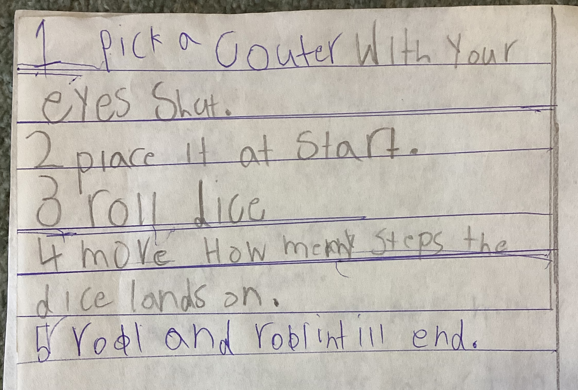 1 Pick a Couter With Your
eYes Shut.
2 place It at Start.
3 roll dice
4 move How meny steps the
dice lands on.
5 roll and roll intill end.